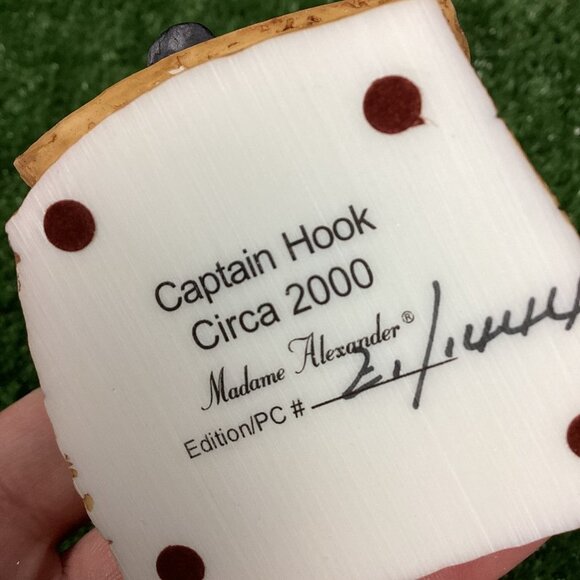 Captain Hook
Circa 2000
Madame Alexander®
Edition/PC # 2,/1444